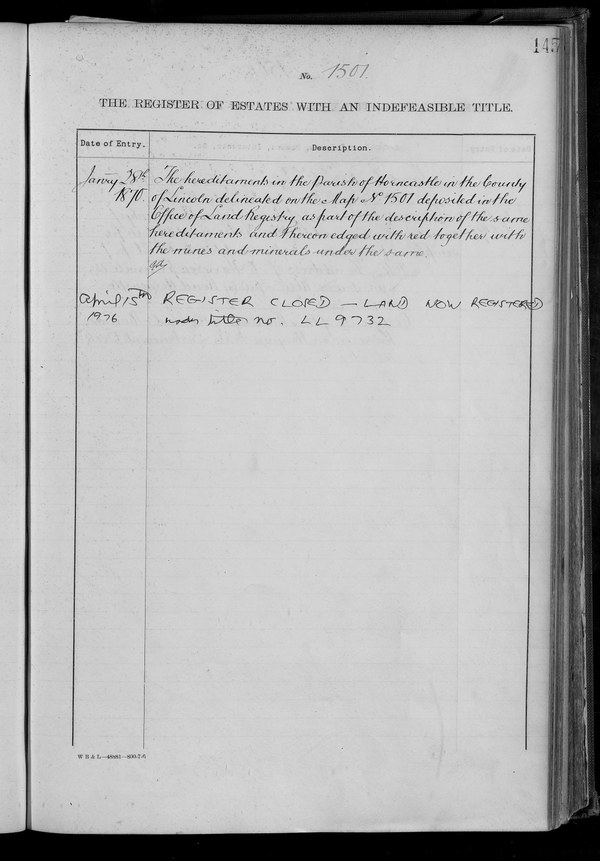 145
No. 1501.
THE REGISTER OF ESTATES WITH AN INDEFEASIBLE TITLE.
Date of Entry. Description.
Janry 28th The hereditaments in the Parish of Horncastle in the County
1870. of Lincoln delineated on the Map No 1501 deposited in the
Office of Land Registry as part of the description of the same
hereditaments and thereon edged with red together with
the mines and minerals under the same.
April 15th REGISTER CLOSED — LAND NOW REGISTERED
1976 under title no. LL 9732
W B & L—46881—800-7-6